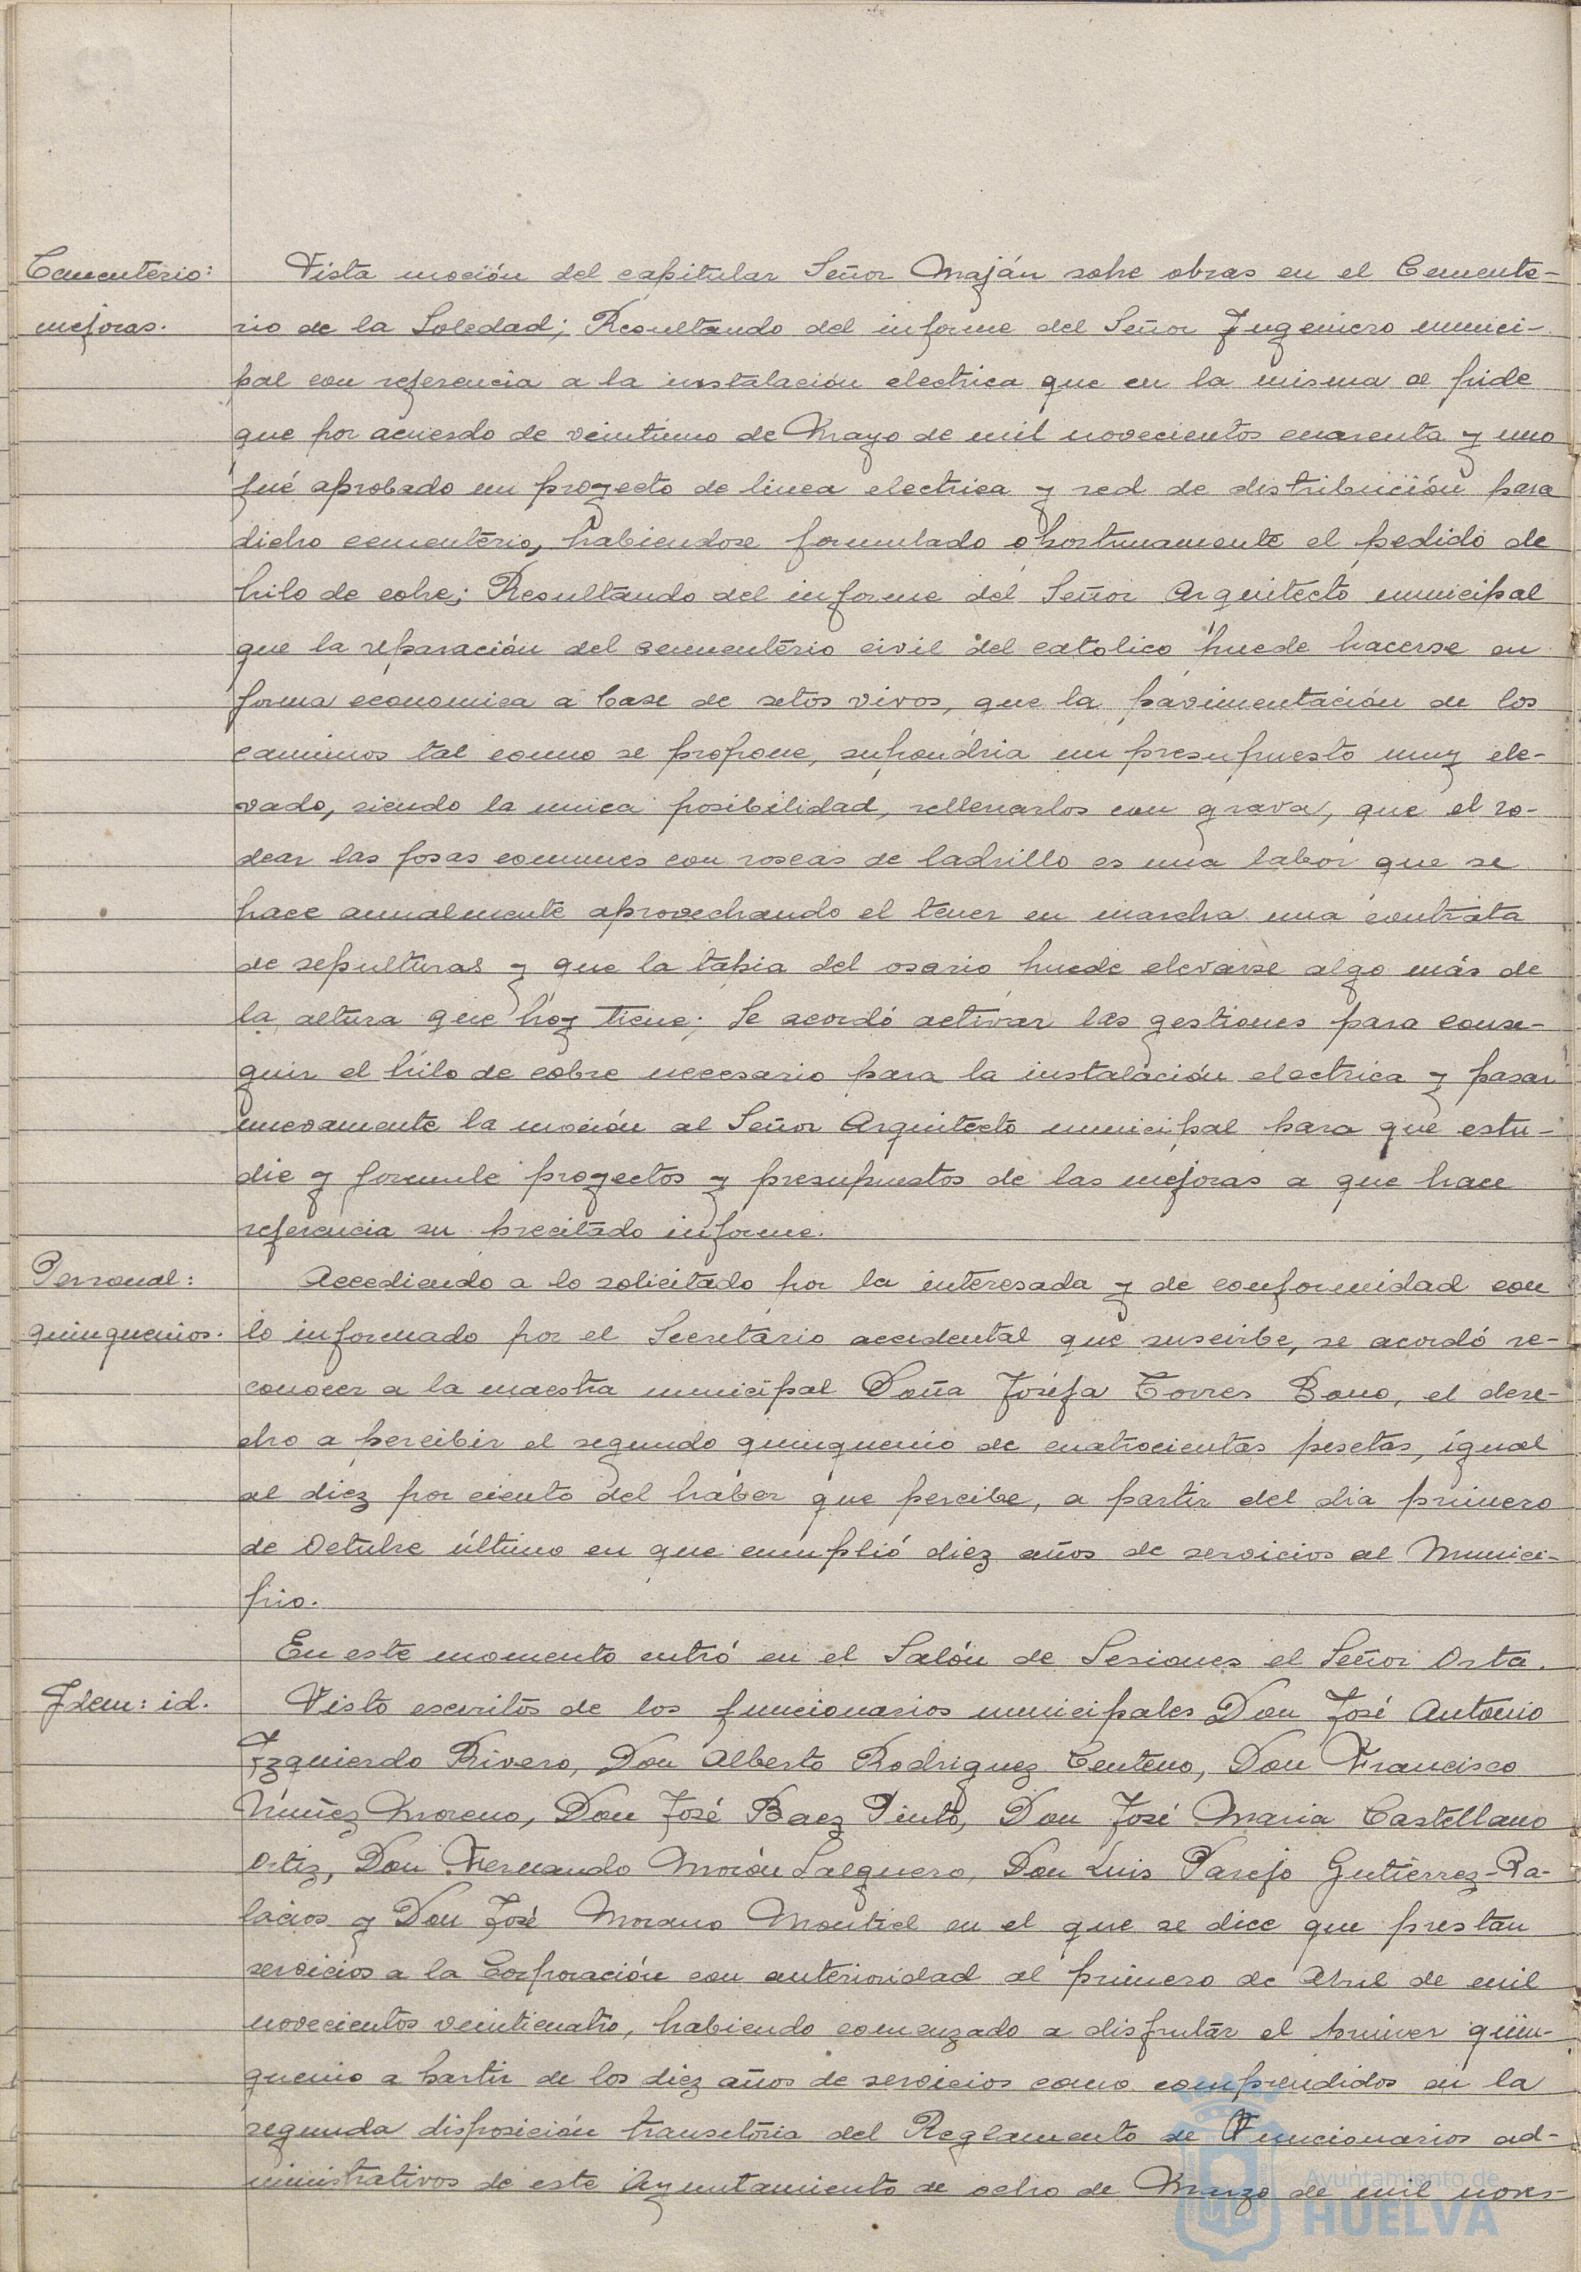 Cementerio:
mejoras.
Vista moción del capitular Señor Maján sobre obras en el Cemente-
rio de la Soledad; Resultando del informe del Señor Ingeniero munici-
pal con referencia a la instalación electrica que en la misma se pide
que por acuerdo de veintiuno de Mayo de mil novecientos cuarenta y uno
fué aprobado un proyecto de linea electrica y red de distribución para
dicho cementerio, habiendose formulado oportunamente el pedido de
hilo de cobre; Resultando del informe del Señor Arquitecto municipal
que la reparación del cementerio civil del catolico puede hacerse en
forma economica a base de setos vivos, que la pavimentación de los
caminos tal como se propone, supondria un presupuesto muy ele-
vado, siendo la unica posibilidad, rellenarlos con grava, que el ro-
dear las fosas comunes con roscas de ladrillo es una labor que se
hace anualmente aprovechando el tener en marcha una contrata
de sepulturas y que la tapia del osario puede elevarse algo más de
la altura que hoy tiene; Se acordó activar las gestiones para conse-
guir el hilo de cobre necesario para la instalación electrica y pasar
nuevamente la moción al Señor Arquitecto municipal para que estu-
die y formule proyectos y presupuestos de las mejoras a que hace
referencia su precitado informe.
Personal:
quinquenios.
Accediendo a lo solicitado por la interesada y de conformidad con
lo informado por el Secretario accidental que suscribe, se acordó re-
conocer a la maestra municipal Doña Josefa Torres Bono, el dere-
cho a percibir el segundo quinquenio de cuatrocientas pesetas, igual
al diez por ciento del haber que percibe, a partir del dia primero
de Octubre último en que cumplió diez años de servicios al Munici-
pio.
En este momento entró en el Salón de Sesiones el Señor Orta.
Idem: id.
Visto escritos de los funcionarios municipales Don José Antonio
Izquierdo Rivero, Don Alberto Rodriguez Centeno, Don Francisco
Núñez Moreno, Don José Baez Pinto, Don José Maria Castellano
Ortiz, Don Fernando Morón Salguero, Don Luis Parejo Gutiérrez-Pa-
lacios y Don José Morano Montiel en el que se dice que prestan
servicios a la Corporación con anterioridad al primero de Abril de mil
novecientos veinticuatro, habiendo comenzado a disfrutar el primer quin-
quenio a partir de los diez años de servicios como comprendidos en la
segunda disposición transitoria del Reglamento de Funcionarios ad-
ministrativos de este Ayuntamiento de ocho de Marzo de mil nove-
Ayuntamiento de
HUELVA